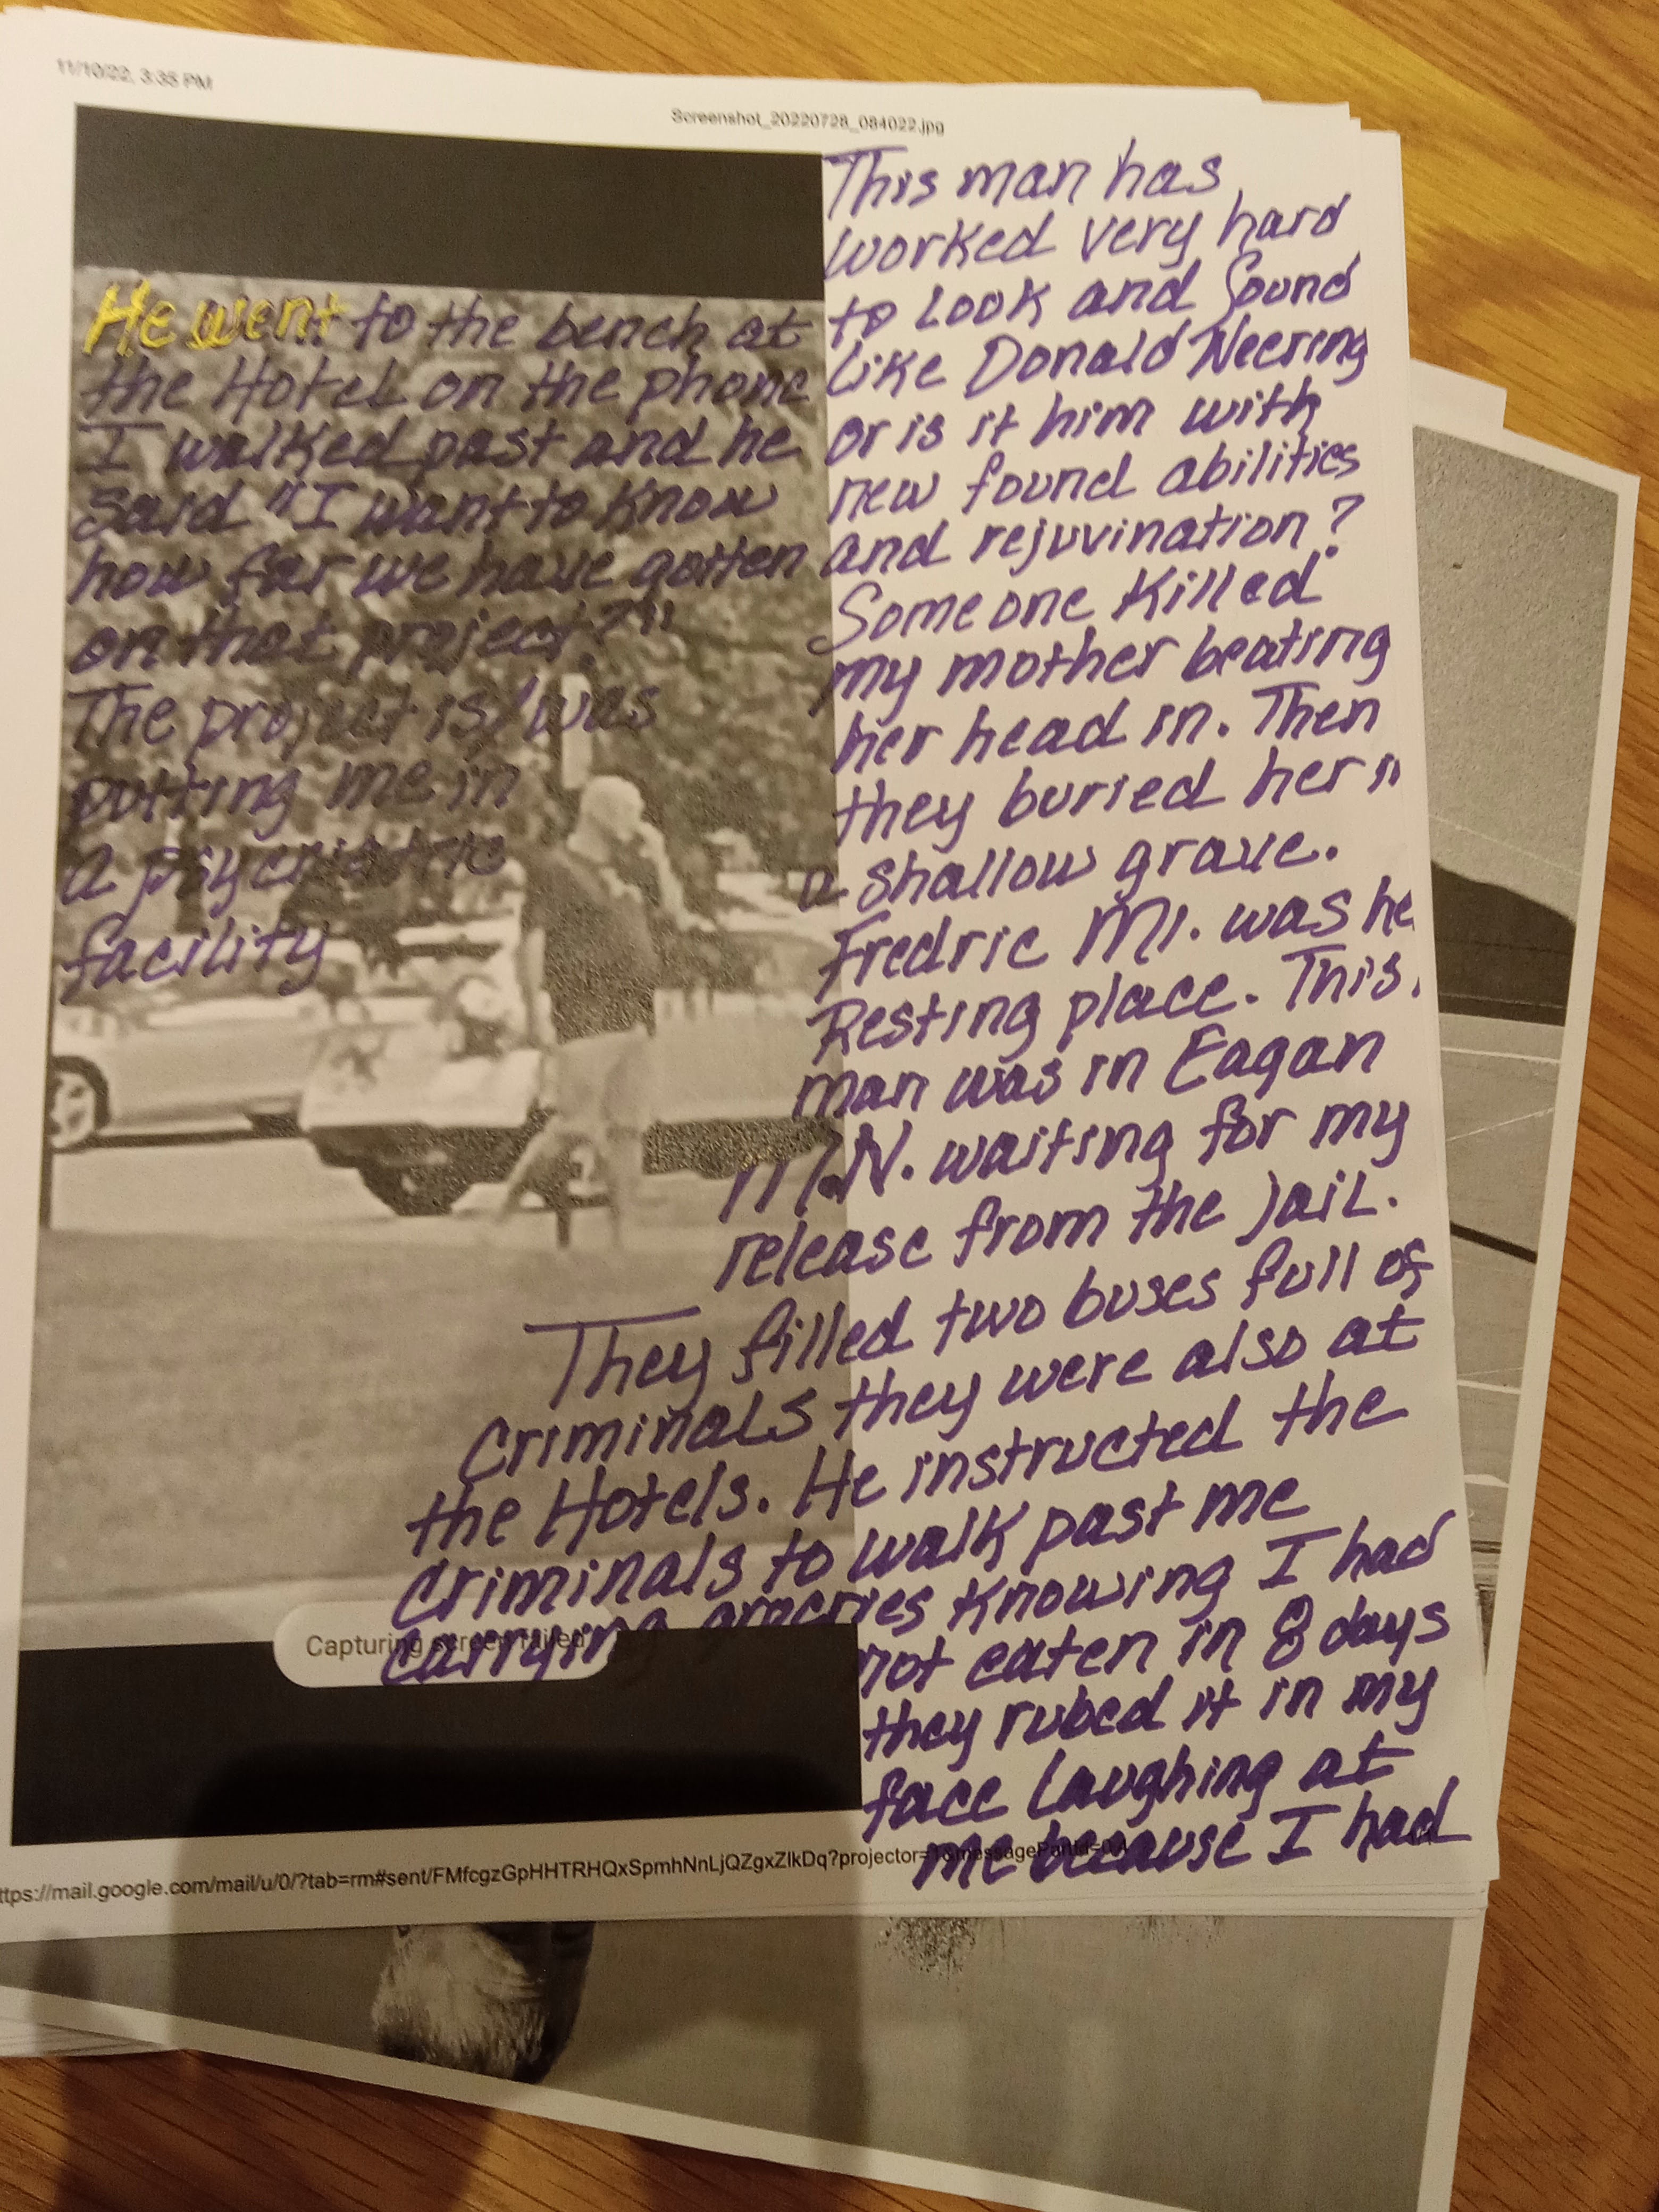 11/10/22, 3:35 PM
Screenshot_20220728_084022.jpg
He went to the bench at
the Hotel on the phone
I walked past and he
said "I want to know
how far we have gotten
on that project?"
The project is/was
putting me in
a psychiatric
facility
This man has
worked very hard
to look and sound
like Donald Neering
or is it him with
new found abilities
and rejuvination?
Someone killed
my mother beating
her head in. Then
they buried her n
a shallow grave.
Fredric MI. was he
Resting place. This
man was in Eagan
M.N. waiting for my
release from the jail.
They filled two buses full of
criminals they were also at
the Hotels. He instructed the
criminals to walk past me
carrying groceries knowing I had
not eaten in 8 days
they rubed it in my
face laughing at
me because I had
Capturing screen failed
ttps://mail.google.com/mail/u/0/?tab=rm#sent/FMfcgzGpHHTRHQxSpmhNnLjQZgxZlkDq?projector=1&messagePartId=0.1